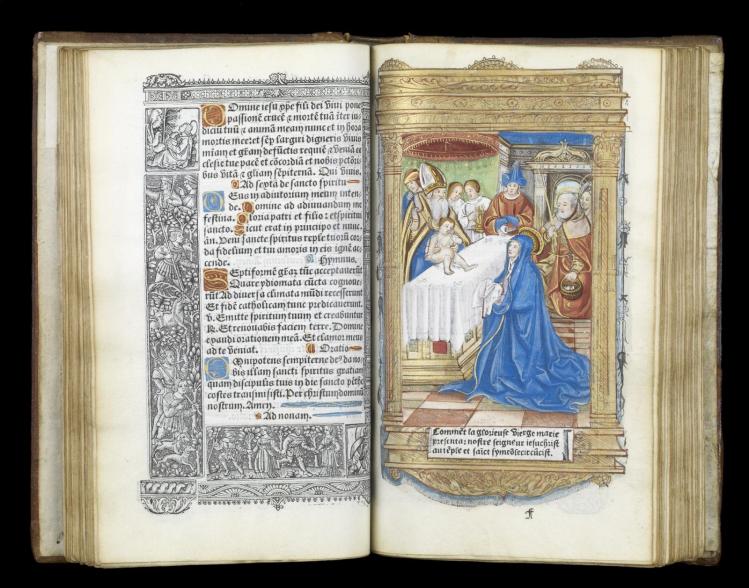 Domine iesu xpe fili dei viui pone
passionē crucē ⁊ mortē tuā īter iu-
diciū tuū ⁊ animā meam nunc et in hora
mortis mee: et
largiri digneris viuis
miam et gr̄am defūctis requiē ⁊ veniā ec
clesie tue pacē et cōcordiā et nobis pctōri
bus vitā ⁊ gl̄iam sēpiternā. Qui viuis.
Ad sextā de sancto spiritu
Deus in adiutorium meum inten
de. Domine ad adiuuandum me
festina. Gloria patri et filio: et spiritui
sancto. Sicut erat in principo et nunc.
an. Veni sancte spiritus reple tuorū cor
da fidelium et tui amoris in eis ignē ac
cende. Hymnus.
Septiformē gr̄az tūc acceptauerūt
Quare ydiomata cūcta cognoue
rūt Ad diuersa climata mūdi recesserunt
Et fidē catholicam tunc predicauerunt.
v. Emitte spiritum tuum et creabuntur
R. Et renouabis faciem terre. Domine
exaudi orationem meā. Et clamor meus
ad te veniat. Oratio
Omnipotens sempiterne deꝰ da no-
bis illam sancti spiritus gratiam
quam discipulis tuis in die sancto pēthe
costes transmisisti. Per christum dominū
nostrum. Amen.
Ad nonam.
Commēt la glorieuse vierge marie
presenta: nostre seigneur iesuchrist
au tēple et saīct symeō